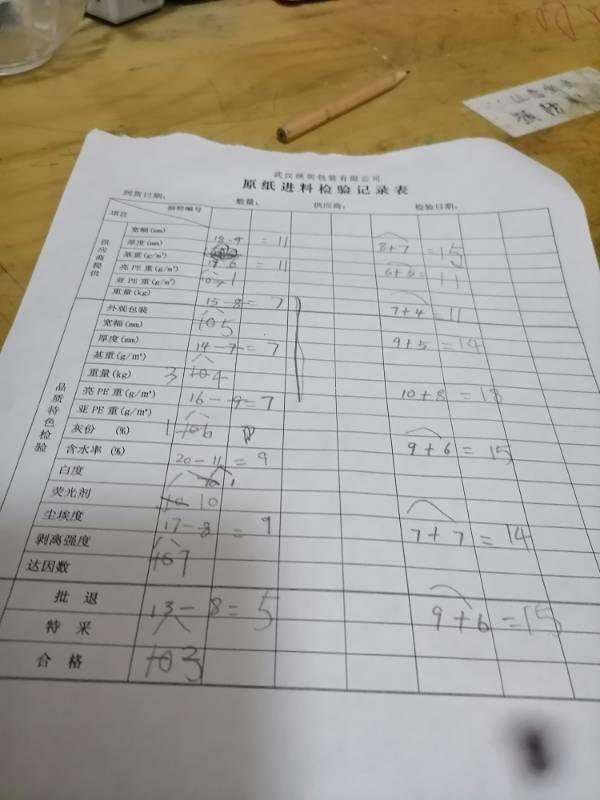 原纸进料检验记录表
到货日期： 数量： 供应商： 检验日期：
项目 抽检编号
供应商提供
宽幅(mm)
厚度(mm) = 11 8+7 =15
基重(g/m²)
亮PE重(g/m²) = 11 6+5= 11
亚PE重(g/m²)
重量(kg) 15-8= 7
外观包装 7+4 =11
宽幅(mm) 10 5
厚度(mm) 14-7= 7 9+5 =14
基重(g/m²)
重量(kg) 3 10 4
亮PE重(g/m²) 16-9=7 10+8 = 18
亚PE重(g/m²)
灰份 (%) 1 10 6
含水率 (%) 20-11= 9 9+6 = 15
白度
荧光剂 10 10
尘埃度 17-8 = 9 7+7 =14
剥离强度
达因数 10 7
品质特色检验
批退 13-8=5 9+6 =15
特采
合格 10 3